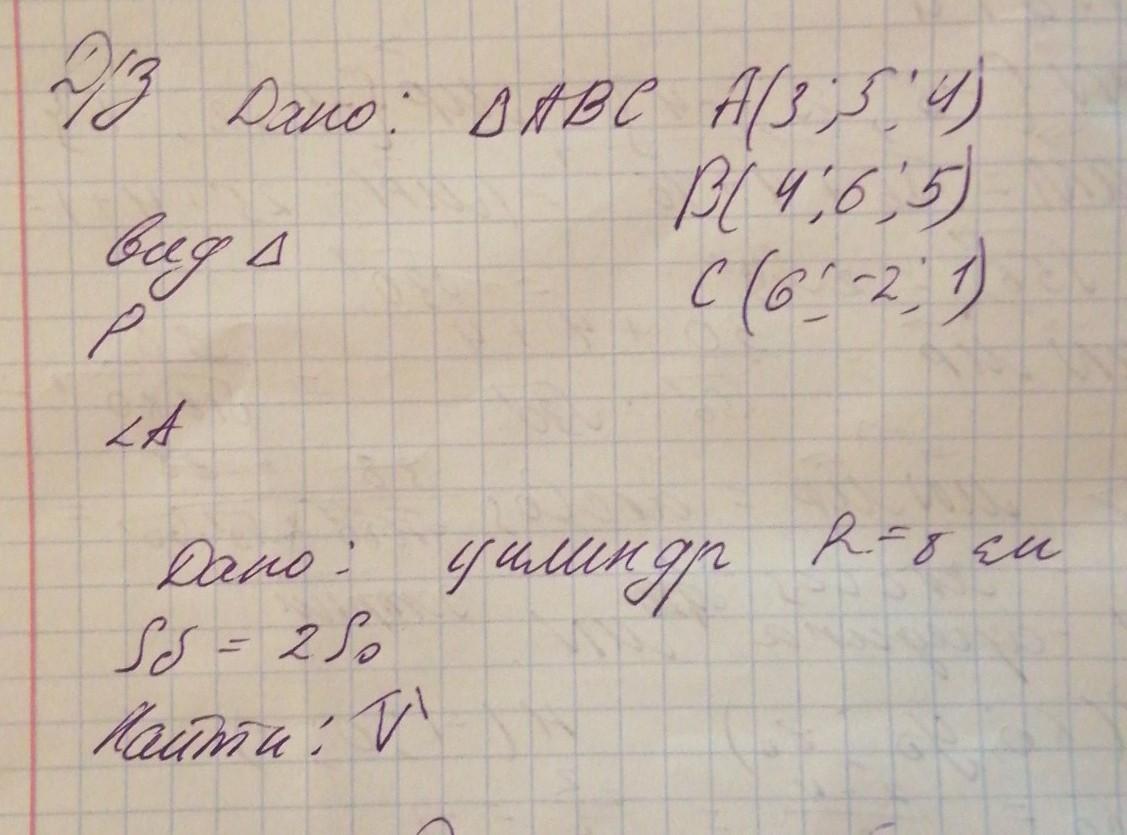 Д/З Дано: Δ ABC A(3; 5; 4)
B(4; 6; 5)
вид Δ
C(6; -2; 1)
P
∠A
Дано: цилиндр R = 8 см
Sб = 2So
Найти: V